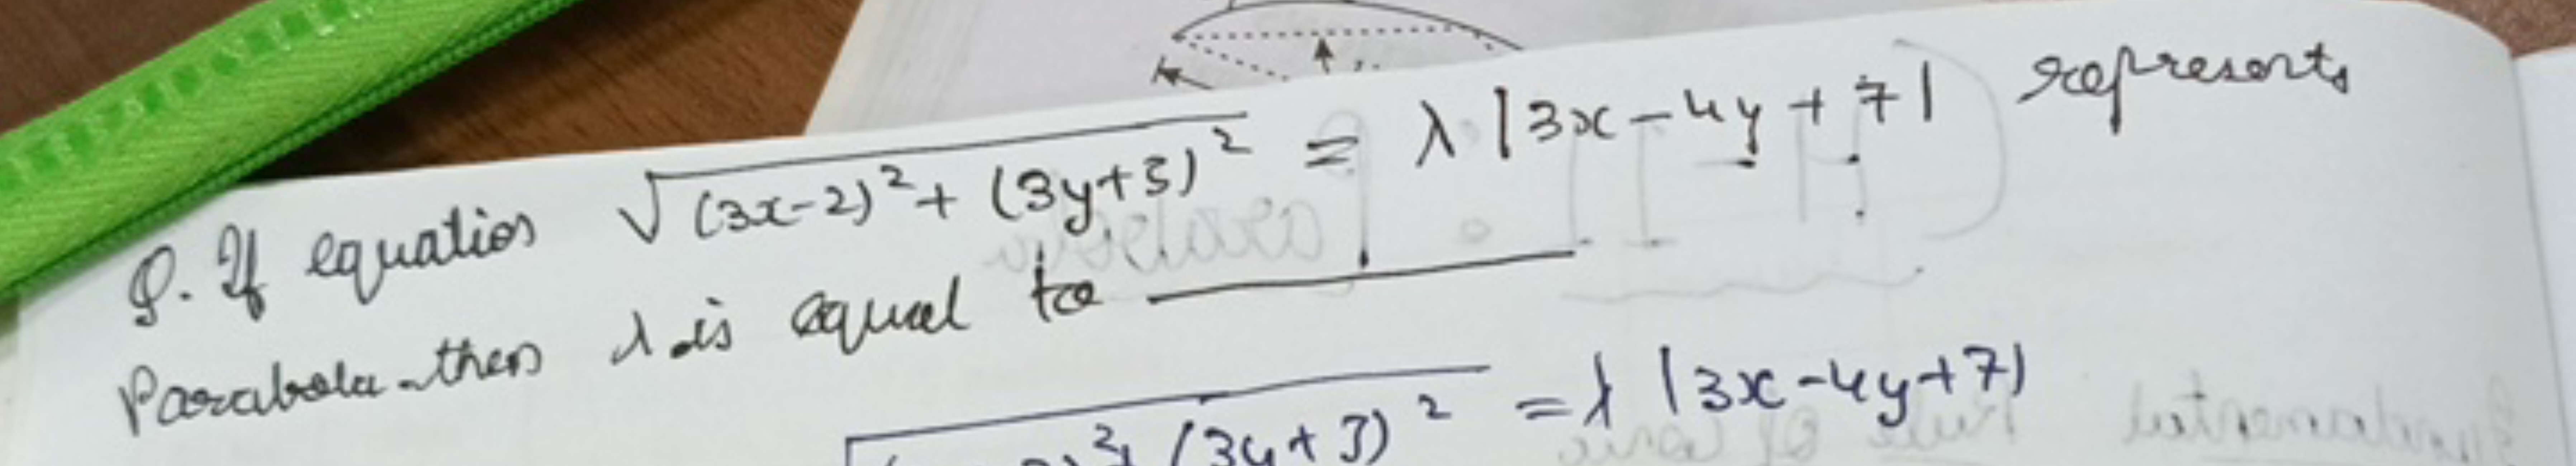 Q. If equation √(3x-2)²+ (3y+3)² = λ |3x-4y+7| represents
Parabola then λ is equal to ________
(3y+3)² = λ |3x-4y+7|